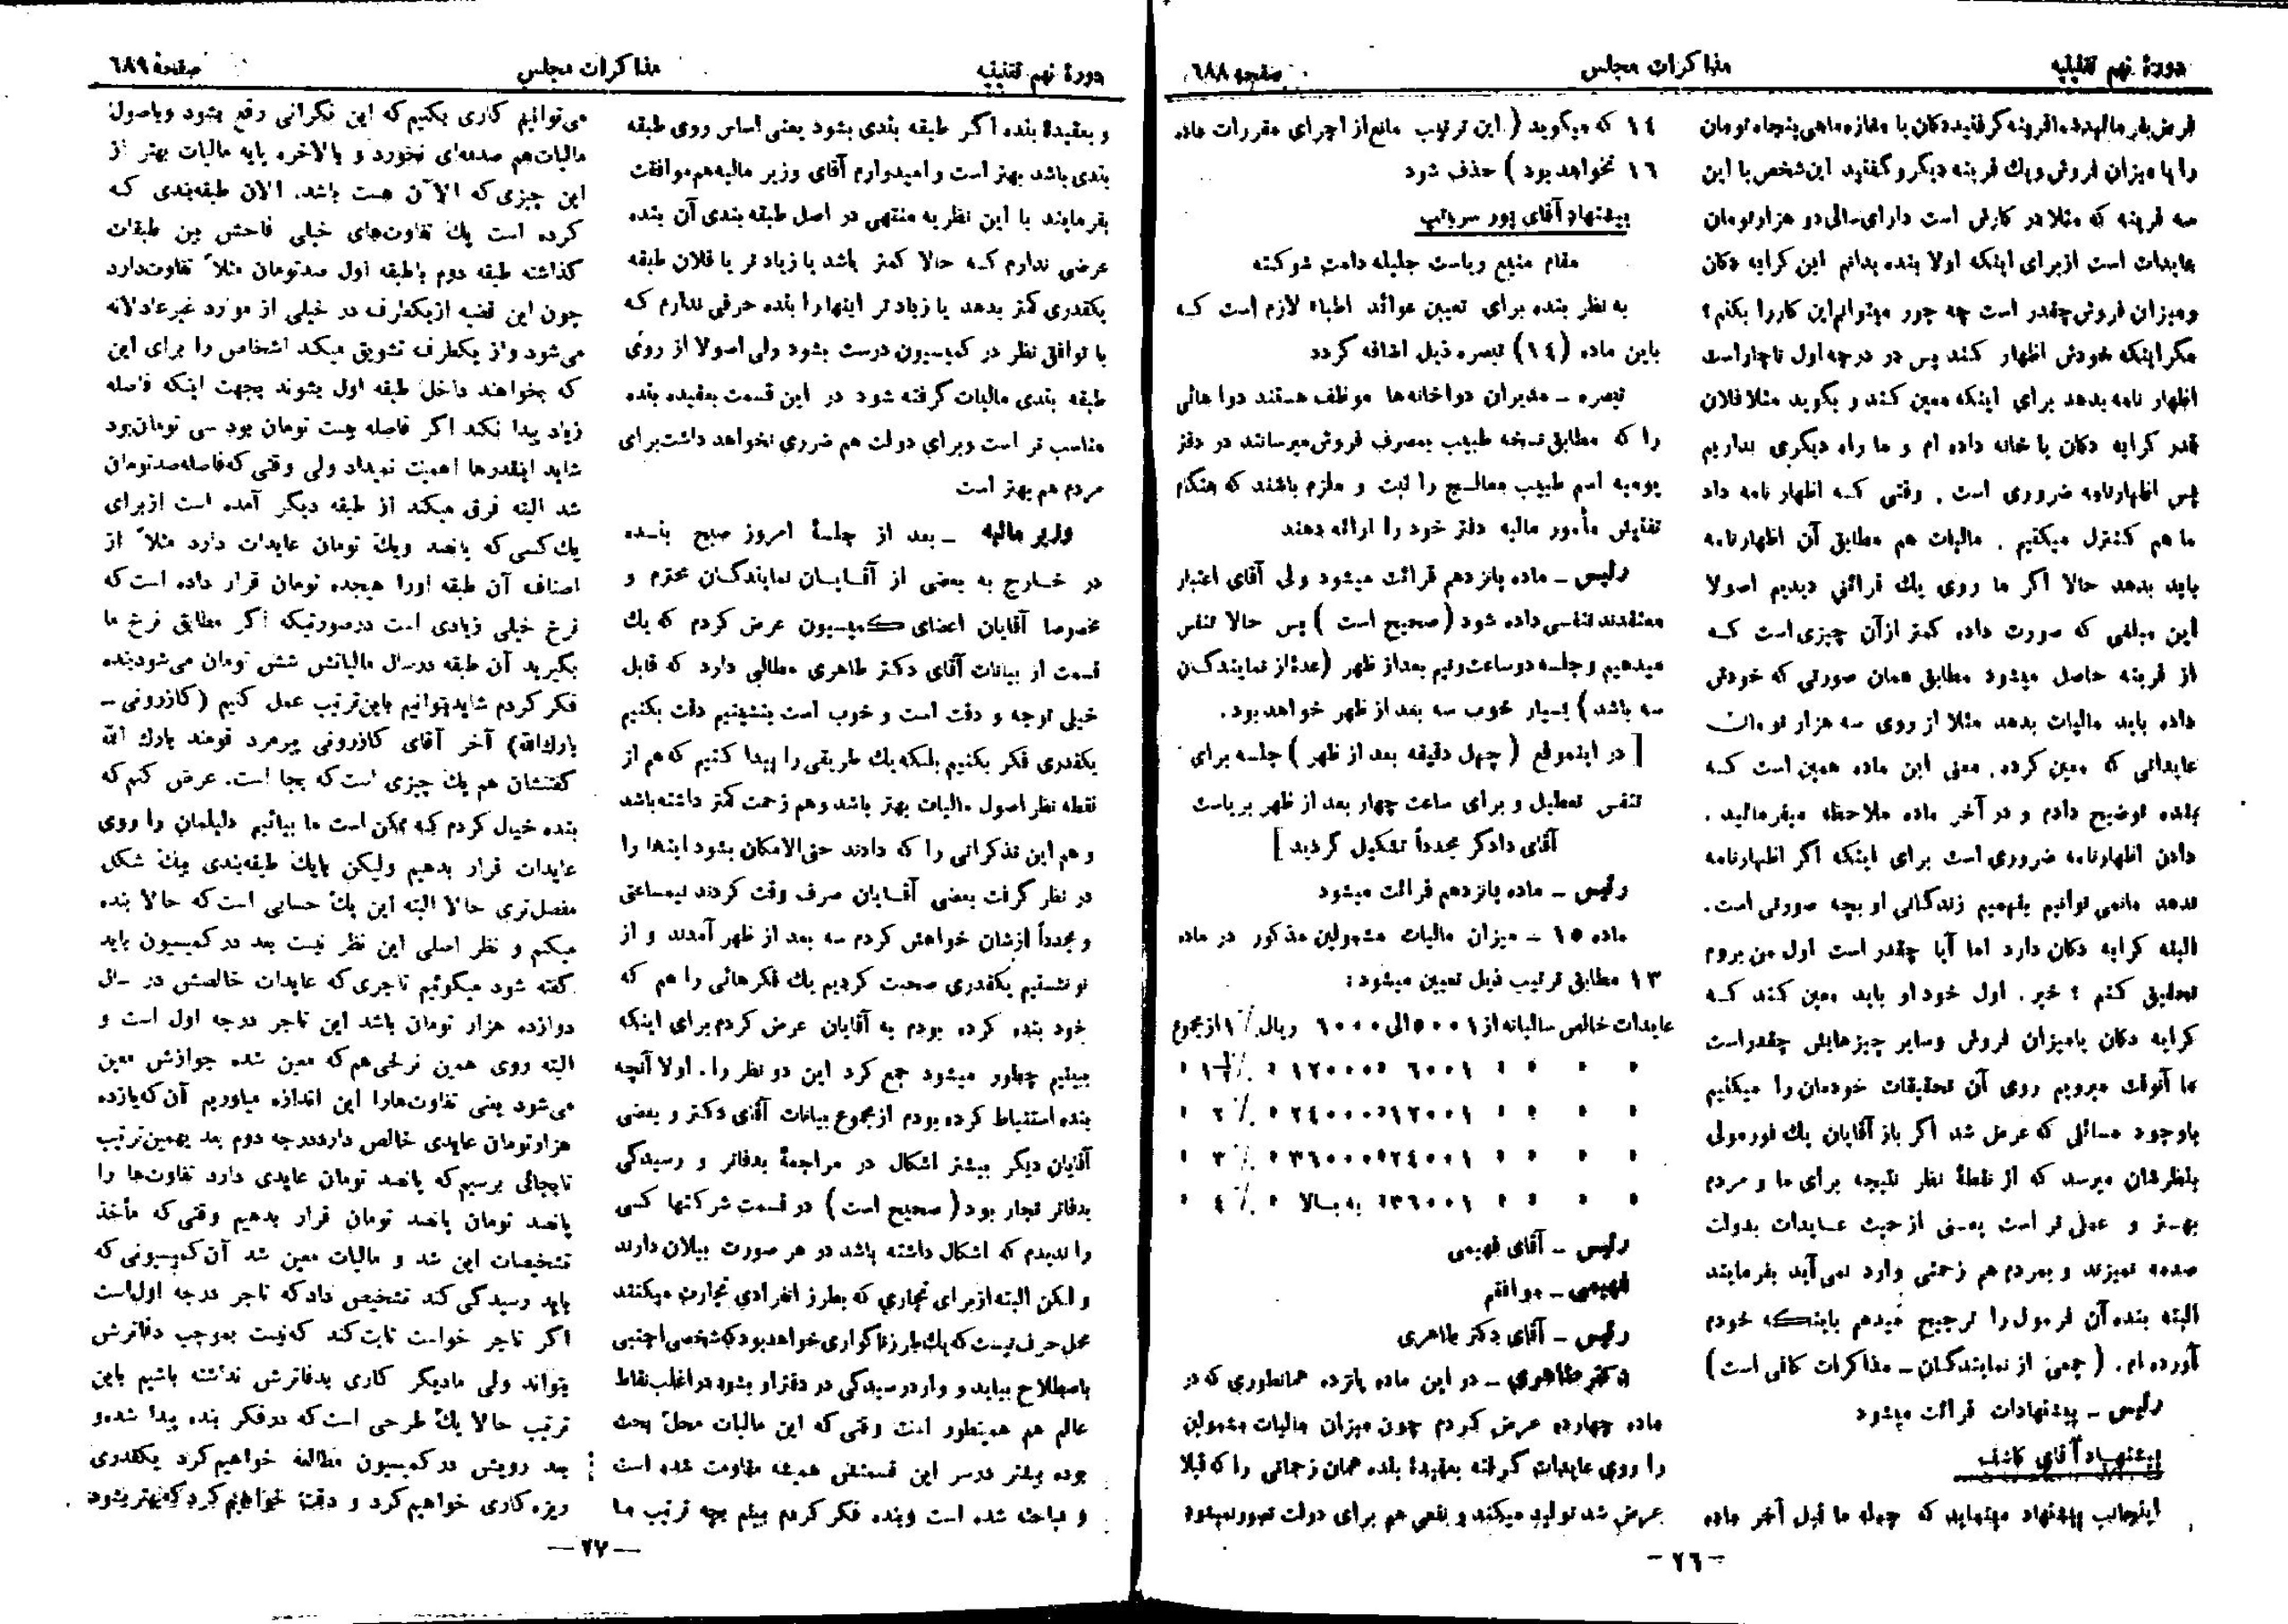 دورهٔ نهم تقنینیه
مذاکرات مجلس
صفحه ۶۸۸
فرض بفرمائید ده قرینه گرفتید دکان یا مغازه ماهی پنجاه تومان
را یا میزان فروش و یك قرینه دیگر و گفتید این شخص با این
سه قرینه که مثلا در کارش است دارای سالی دو هزار تومان
عایدات است از برای اینکه اولا بنده بدانم این کرایه دکان
و میزان فروش چقدر است چه جور میتوانم این کار را بکنم؟
مگر اینکه خودش اظهار کند پس در درجه اول ناچار است
اظهار نامه بدهد برای اینکه معین کند و بگوید مثلا فلان
قدر کرایه دکان یا خانه داده ام و ما راه دیگری نداریم
پس اظهارنامه ضروری است. وقتی کـه اظهار نامه داد
ما هم کنترل میکنیم. مالیات هم مطابق آن اظهارنامه
باید بدهد حالا اگر ما روی یك قرائنی دیدیم اصولا
این مبلغی که صورت داده کمتر از آن چیزی است کـه
از قرینه حاصل میشود مطابق همان صورتی که خودش
داده باید مالیات بدهد مثلا از روی سه هزار تومان
عایداتی که معین کرده. معنی این ماده همین است کـه
بنده توضیح دادم و در آخر ماده ملاحظه میفرمائید.
دادن اظهارنامه ضروری است برای اینکه اگر اظهارنامه
ندهد ما نمی توانیم بفهمیم زندگانی او بچه صورتی است.
البته کرایه دکان دارد اما آیا چقدر است اول من بروم
تحقیق کنم؟ خیر. اول خود او باید معین کند کـه
کرایه دکان یا میزان فروش و سایر چیزهایش چقدر است
ما آنوقت میرویم روی آن تحقیقات خودمان را میکنیم
باوجود مسائلی که عرض شد اگر باز آقایان یك فورمولی
بنظرشان میرسد که از نقطهٔ نظر نتیجه برای ما و مردم
بهـتر و عملی تر است یعـنی از حیث عـایدات بدولت
صدمه نمیزند و بمردم هم زحمتی وارد نمی آید بفرمایند
البته بنده آن فرمول را ترجیح میدهم باینـکه خودم
آورده ام. (جمعی از نمایندگـان ـ مذاکرات کافی است)
رئیس ـ پیشنهادات قرائت میشود
پیشنهـاد آقای کاشف
اینجانب پیشنهاد مینماید که جمله ما قبل آخر ماده
۱۴ که میگوید (این ترتیب مانع از اجرای مقررات ماده
۱۶ نخواهد بود) حذف شود
پیشنهاد آقای پور سرتیپ
مقام منیع ریاست جلیله دامت شوکته
به نظر بنده برای تعیین عوائد اطباء لازم است کـه
باین ماده (۱۴) تبصره ذیل اضافه گردد
تبصره ـ مدیران دواخانه‌ها موظف هستند دوا هائی
را که مطابق نسخه طبیب بمصرف فروش میرسانند در دفتر
یومیه اسم طبیب معالـج را ثبت و ملزم باشند که هنگام
تفتیش مأمور مالیه دفتر خود را ارائه دهند
رئیس ـ ماده پانزدهم قرائت میشود ولی آقای اعتبار
معتقدند تنفسی داده شود (صحیح است) پس حالا تنفس
میدهیم و جلسه دو ساعت و نیم بعد از ظهر (عدهٔ از نمایندگـان
سه باشد) بسیار خوب سه بعد از ظهر خواهد بود.
[در اینموقع (چهل دقیقه بعد از ظهر) جلسه برای
تنفس تعطیل و برای ساعت چهار بعد از ظهر بریاست
آقای دادگر مجدداً تشکیل گردید]
رئیس ـ ماده پانزدهم قرائت میشود
ماده ۱۵ ـ میزان مالیات مشمولین مذکور در ماده
۱۳ مطابق ترتیب ذیل تعیین میشود:
عایدات خالص سالیانه از ۵۰۰۱ الی ۶۰۰۰ ریال ٪۱ از مجموع
» » » » ۶۰۰۱ » ۱۲۰۰۰ » ٪ ۱ ½ »
» » » » ۱۲۰۰۱ » ۲۴۰۰۰ » ٪ ۲ »
» » » » ۲۴۰۰۱ » ۳۶۰۰۰ » ٪ ۳ »
» » » » ۳۶۰۰۱ به بـالا » ٪ ۴ »
رئیس ـ آقای فهیمی
فهیمی ـ موافقم
رئیس ـ آقای دکتر طاهری
دکتر طاهری ـ در این ماده پانزده همانطوری که در
ماده چهارده عرض کردم چون میزان مالیات مشمولین
را روی عایدات گرفته بعقیدهٔ بنده همان زحماتی را که قبلا
عرض شد تولید میکند و نفعی هم برای دولت تصور نمیشود
ـ ۲۶ ـ
دورهٔ نهم تقنینیه
مذاکرات مجلس
صفحه ۶۸۹
و بعقیدهٔ بنده اگر طبقه بندی بشود یعنی اساس روی طبقه
بندی باشد بهتر است و امیدوارم آقای وزیر مالیه هم موافقت
بفرمایند با این نظریه منتهی در اصل طبقه بندی آن بنده
عرضی ندارم کـه حالا کمتر باشد یا زیاد تر یا فلان طبقه
یکقدری کمتر بدهد یا زیاد تر اینها را بنده حرفی ندارم کـه
با توافق نظر در کمیسیون درست بشود ولی اصولا از روی
طبقه بندی مالیات گرفته شود در این قسمت بعقیده بنده
مناسب تر است و برای دولت هم ضرری نخواهد داشت برای
مردم هم بهتر است
وزیر مالیه ـ بعد از جلسهٔ امروز صبح بنـده
در خـارج به بعضی از آقـایـان نمایندگـان محترم و
مخصوصا آقایان اعضای کمیسیون عرض کردم که یك
قسمت از بیانات آقای دکتر طاهری مطالبی دارد که قابل
خیلی توجه و دقت است و خوب است بنشینیم دقت بکنیم
یکقدری فکر بکنیم بلکه یك طریقی را پیدا کنیم که هم از
نقطه نظر اصول مالیات بهتر باشد و هم زحمت کمتر داشته باشد
و هم این تذکراتی را که دادند حتی الامکان بشود اینها را
در نظر گرفت بعضی آقـایان صرف وقت کردند نیمساعتی
و مجدداً ازشان خواهش کردم سه بعد از ظهر آمدند و از
نو نشستیم یکقدری صحبت کردیم یك فکرهائی را هم که
خود بنده کرده بودم به آقایان عرض کردم برای اینکه
ببینیم چطور میشود جمع کرد این دو نظر را. اولا آنچه
بنده استنباط کرده بودم از مجموع بیانات آقای دکتر و بعضی
آقایان دیگر بیشتر اشکال در مراجعهٔ بدفاتر و رسیدگی
بدفاتر تجار بود (صحیح است) در قسمت شرکتها کسی
را ندیدم که اشکال داشته باشد در هر صورت بیلان دارند
و لکن البته از برای تجاری که بطرز انفرادی تجارت میکنند
محل حرف نیست که یك طرز ناگواری خواهد بود که شخصی اجنبی
باصطلاح بیاید و وارد رسیدگی در دفتر او بشود در اغلب نقاط
عالم هم همینطور است وقتی که این مالیات محل بحث
بوده بیشتر در سر این قسمتش همیشه مقاومت شده است
و مباحثه شده است و بنده فکر کردم ببینم بچه ترتیب ما
می‌توانیم کاری بکنیم که این نگرانی رفع بشود و باصول
مالیات هم صدمه‌ای نخورد و بالاخره پایه مالیات بهتر از
این چیزی که الآن هست باشد. الان طبقه‌بندی کـه
کرده است یك تفاوت‌های خیلی فاحش بین طبقات
گذاشته طبقه دوم با طبقه اول صد تومان مثلاً تفاوت دارد
چون این قضیه از یکطرف در خیلی از موارد غیرعادلانه
می‌شود و از یکطرف تشویق میکند اشخاص را برای این
که بخواهند داخل طبقه اول بشوند بجهت اینکه فاصله
زیاد پیدا نکند اگر فاصله بیست تومان بود سی تومان بود
شاید اینقدرها اهمیت نمیداد ولی وقتی که فاصله صد تومان
شد البته فرق میکند از طبقه دیگر آمده است از برای
یك کسی که پانصد و یك تومان عایدات دارد مثلاً از
اصناف آن طبقه او را هیجده تومان قرار داده است که
نرخ خیلی زیادی است درصورتیکه اگر مطابق نرخ ما
بگیرید آن طبقه در سال مالیاتش شش تومان می‌شود بنده
فکر کردم شاید بتوانیم باین ترتیب عمل کنیم (کازرونی ـ
بارك‌الله) آخر آقای کازرونی پیرمرد تومند بارك الله
گفتنشان هم یك چیزی است که بجا است. عرض کنم که
بنده خیال کردم که ممکن است ما بیائیم دلیلمان را روی
عایدات قرار بدهیم ولیکن با یك طبقه‌بندی بیك شکل
مفصل‌تری حالا البته این یك حسابی است که حالا بنده
میکنم و نظر اصلی این نظر نیست بعد در کمیسیون باید
گفته شود میگوئیم تاجری که عایدات خالصش در سال
دوازده هزار تومان باشد این تاجر درجه اول است و
البته روی همین نرخی هم که معین شده جوازش معین
می‌شود یعنی تفاوت‌ها را این اندازه میاوریم آن که یازده
هزار تومان عایدی خالص دارد درجه دوم بعد بهمین ترتیب
تا بجائی برسیم که پانصد تومان عایدی دارد تفاوت‌ها را
پانصد تومان پانصد تومان قرار بدهیم وقتی که مأخذ
تشخیصات این شد و مالیات معین شد آن کمیسیونی که
باید رسیدگی کند تشخیص داد که تاجر درجه اول است
اگر تاجر خواست ثابت کند که نیست بموجب دفاترش
بتواند ولی ما دیگر کاری بدفاترش نداشته باشیم باین
ترتیب حالا یك طرحی است که در فکر بنده پیدا شده و
بعد رویش در کمیسیون مطالعه خواهیم کرد یکقدری
ریزه کاری خواهیم کرد و دقت خواهیم کرد که بهتر بشود
ـ ۲۷ ـ